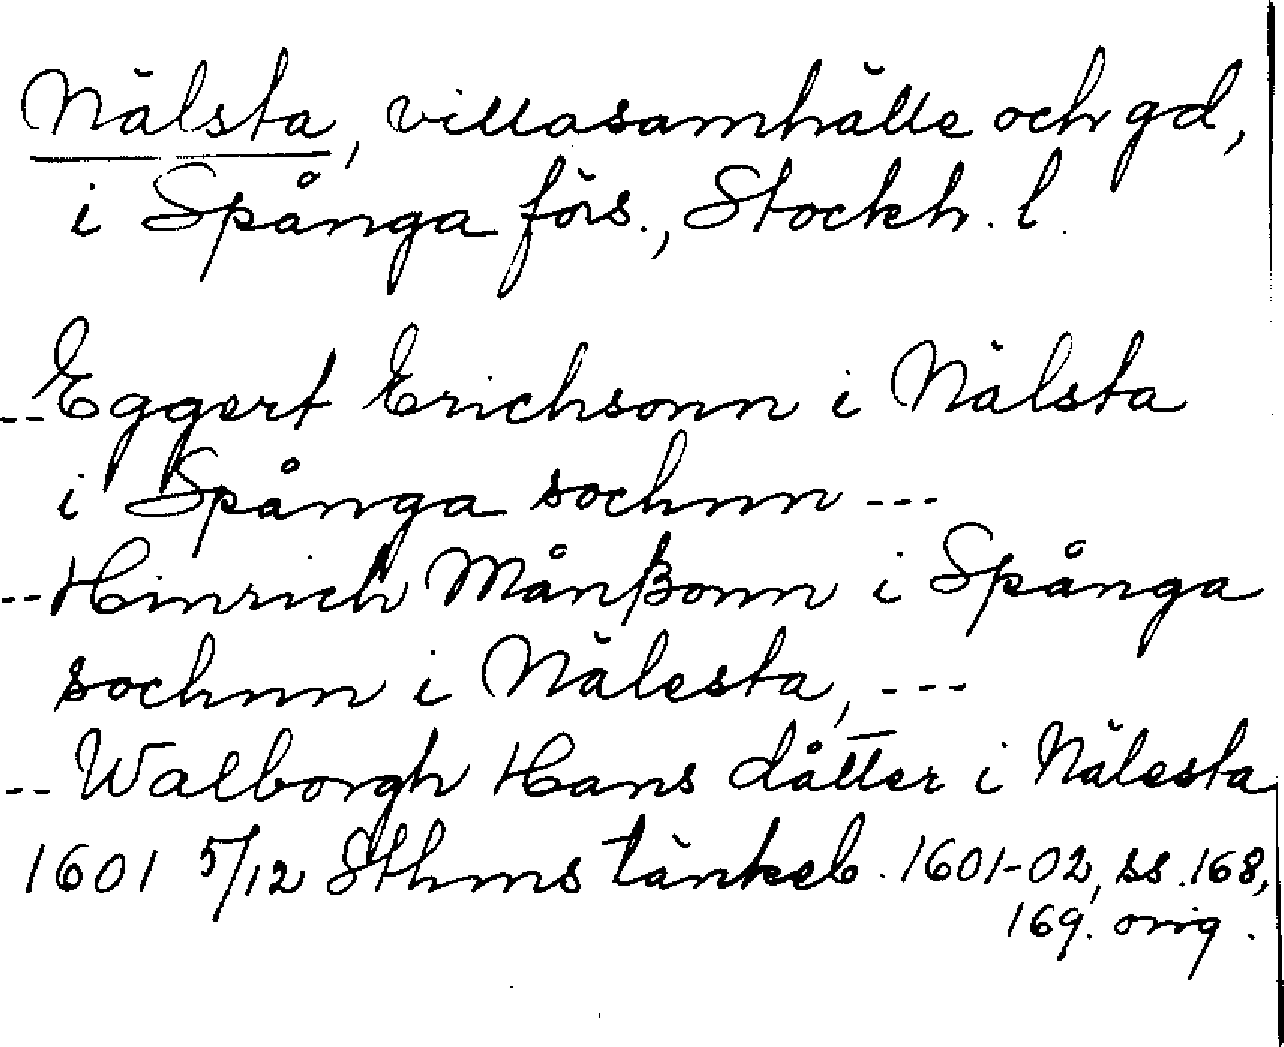 Nälsta, villasamhälle och gd,
i Spånga förs., Stockh. l.
--Eggert Erichsonn i Nälsta
i Spånga sochnn ---
--Hinrich Månßonn i Spånga
sochnn i Nälesta, ---
--Walborgh Hans dåtter i Nälesta
1601 5/12 Sthms tänkeb. 1601-02, ss. 168,
169. orig.